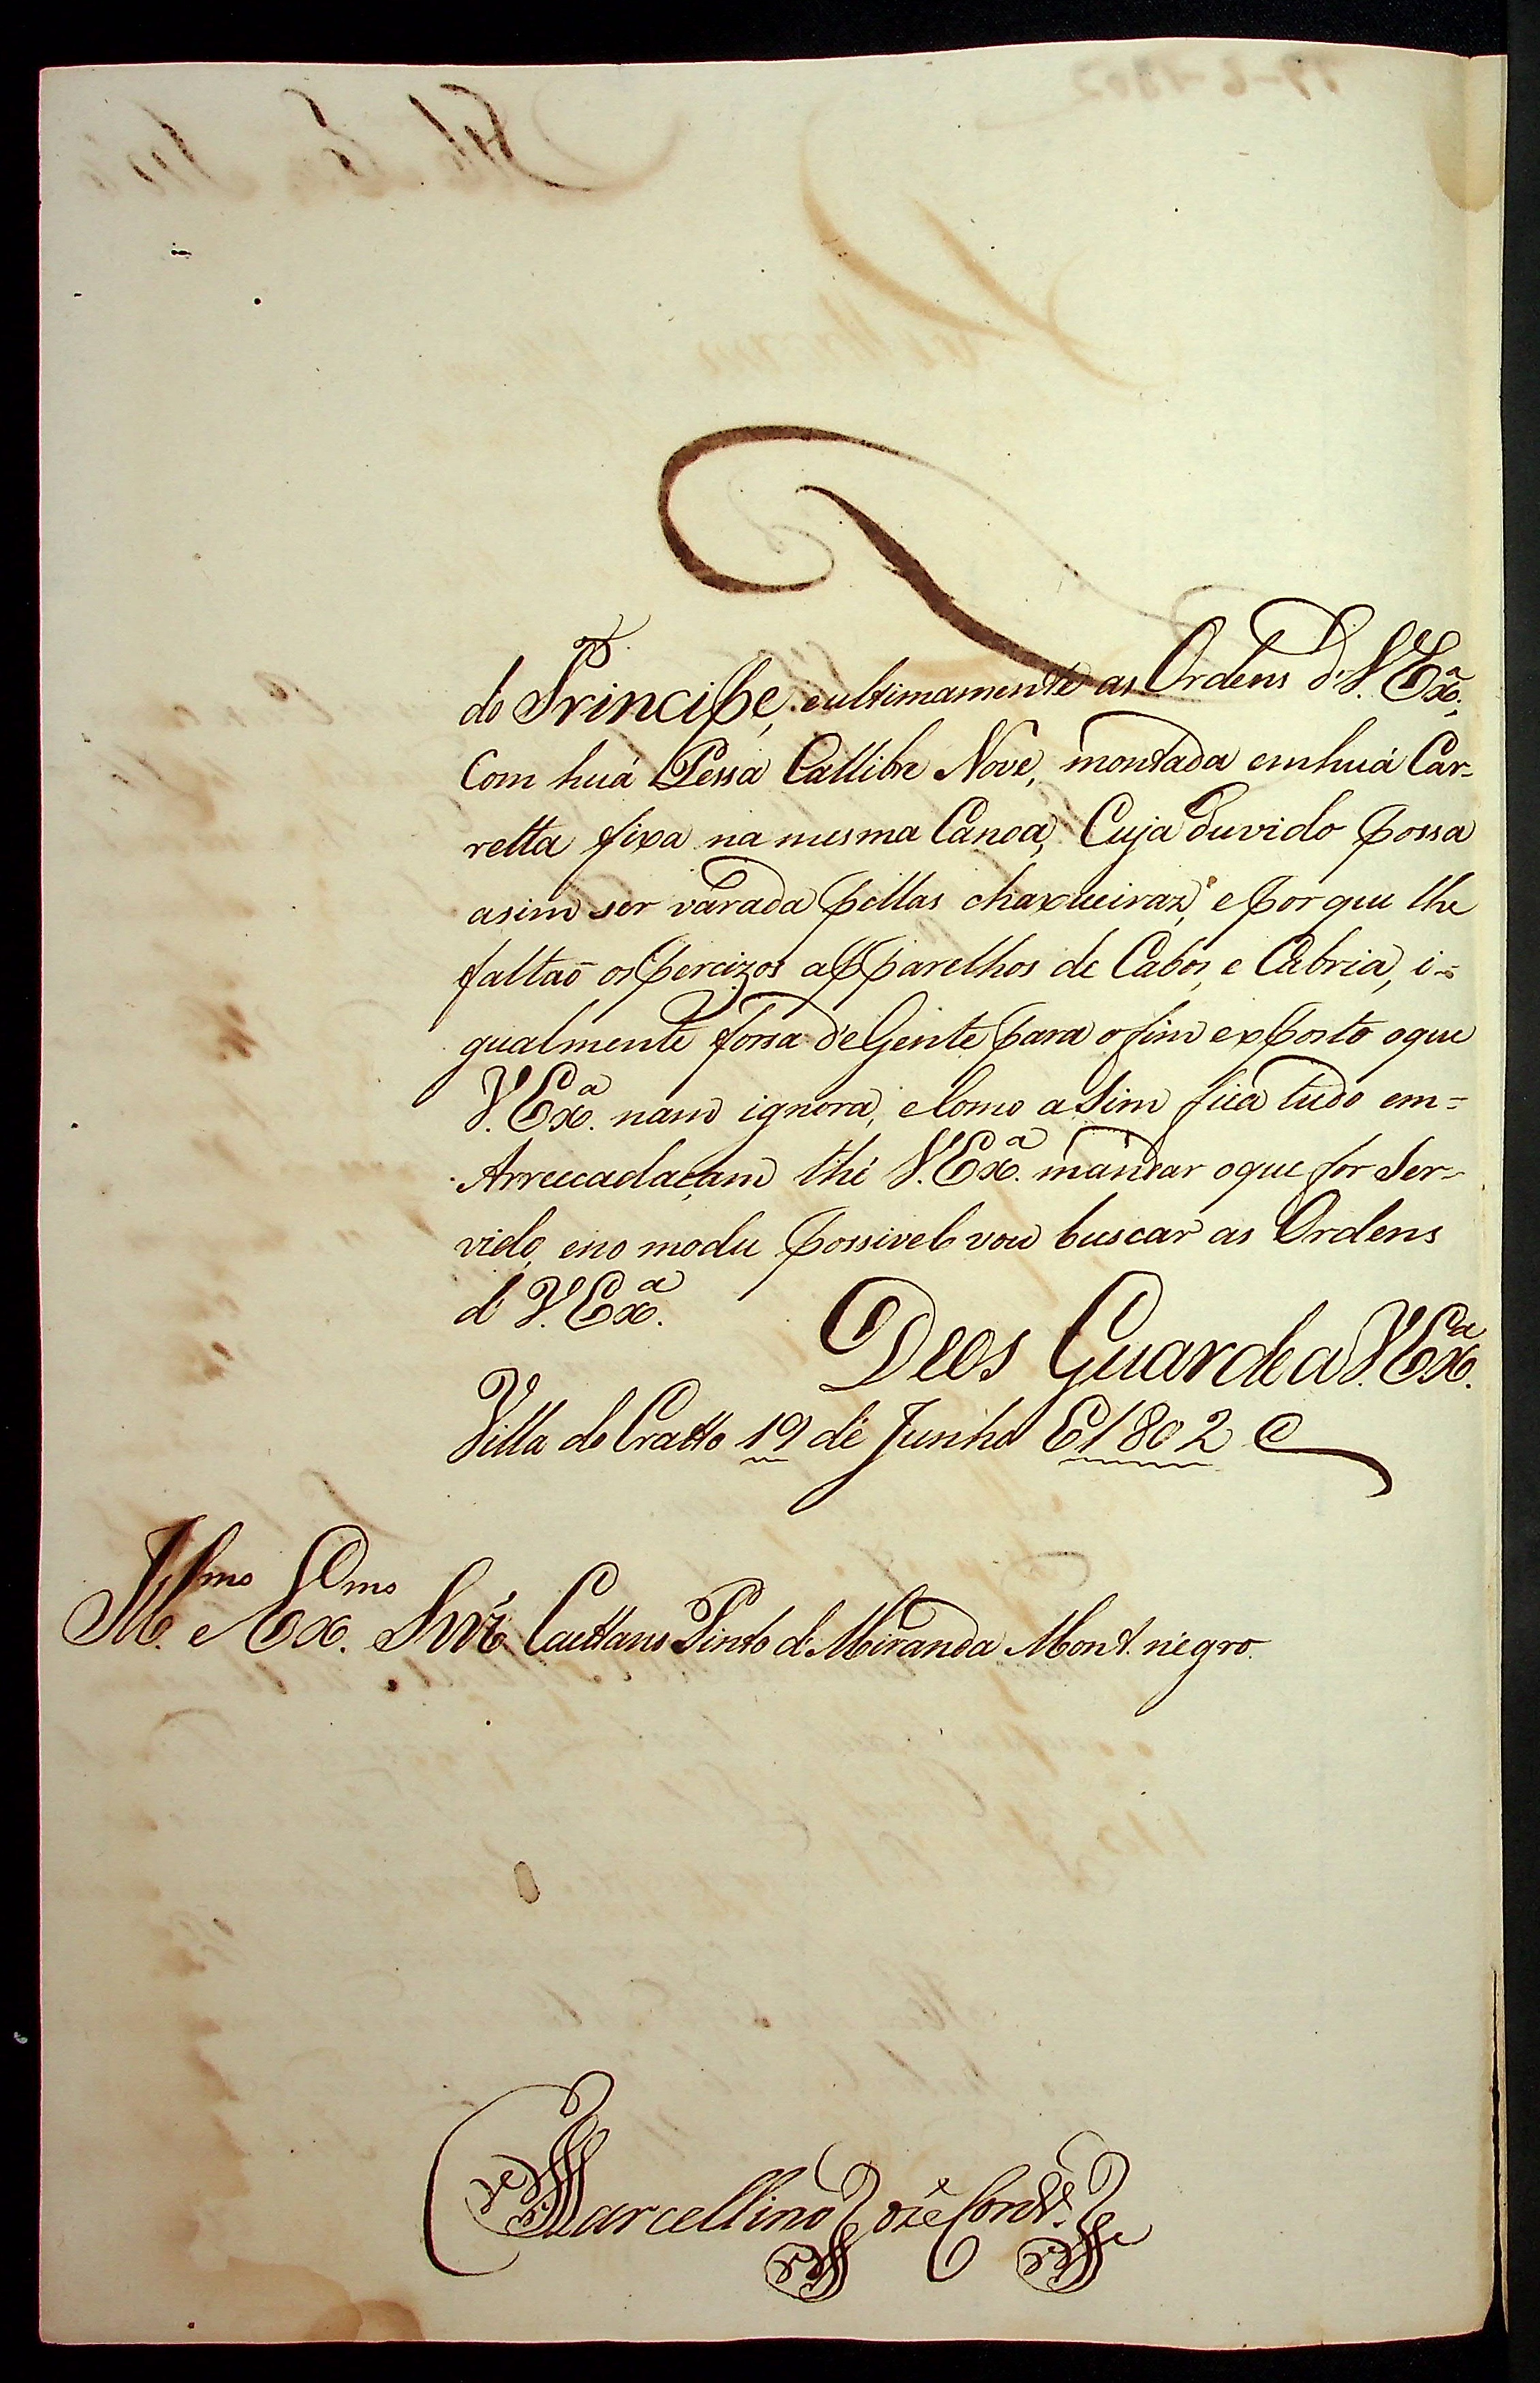 do Principe, eultimamente as Ordens d'V. Exª.,
Com huá Pessa Callibre Nove, montada emhuá Car-
retta fixa na mesma Canoa, Cuja duvido possa
asim ser várada pellas chaxueiraz, eporque lhe
faltaõ os percizos apparelhos de Cabos, e Cabria, i-
gualmente forsa de Gente para ofim exposto oque
V. Exª. nam ignora, eComo aSim fica tudo em=
Arrecadaçam thé V. Exª. mandar oque for Ser-
vido, eno modu possivel vou buscar as Ordens
d V. Exª.
Deos Guarde a V. Exª.
Villa do Cratto 19 de Junho E 1802
Illᵐᵒ e Exᵐᵒ. Snr̃ Caettano Pinto d'Miranda Mont.negro.
Marcellino Joze Cord.º